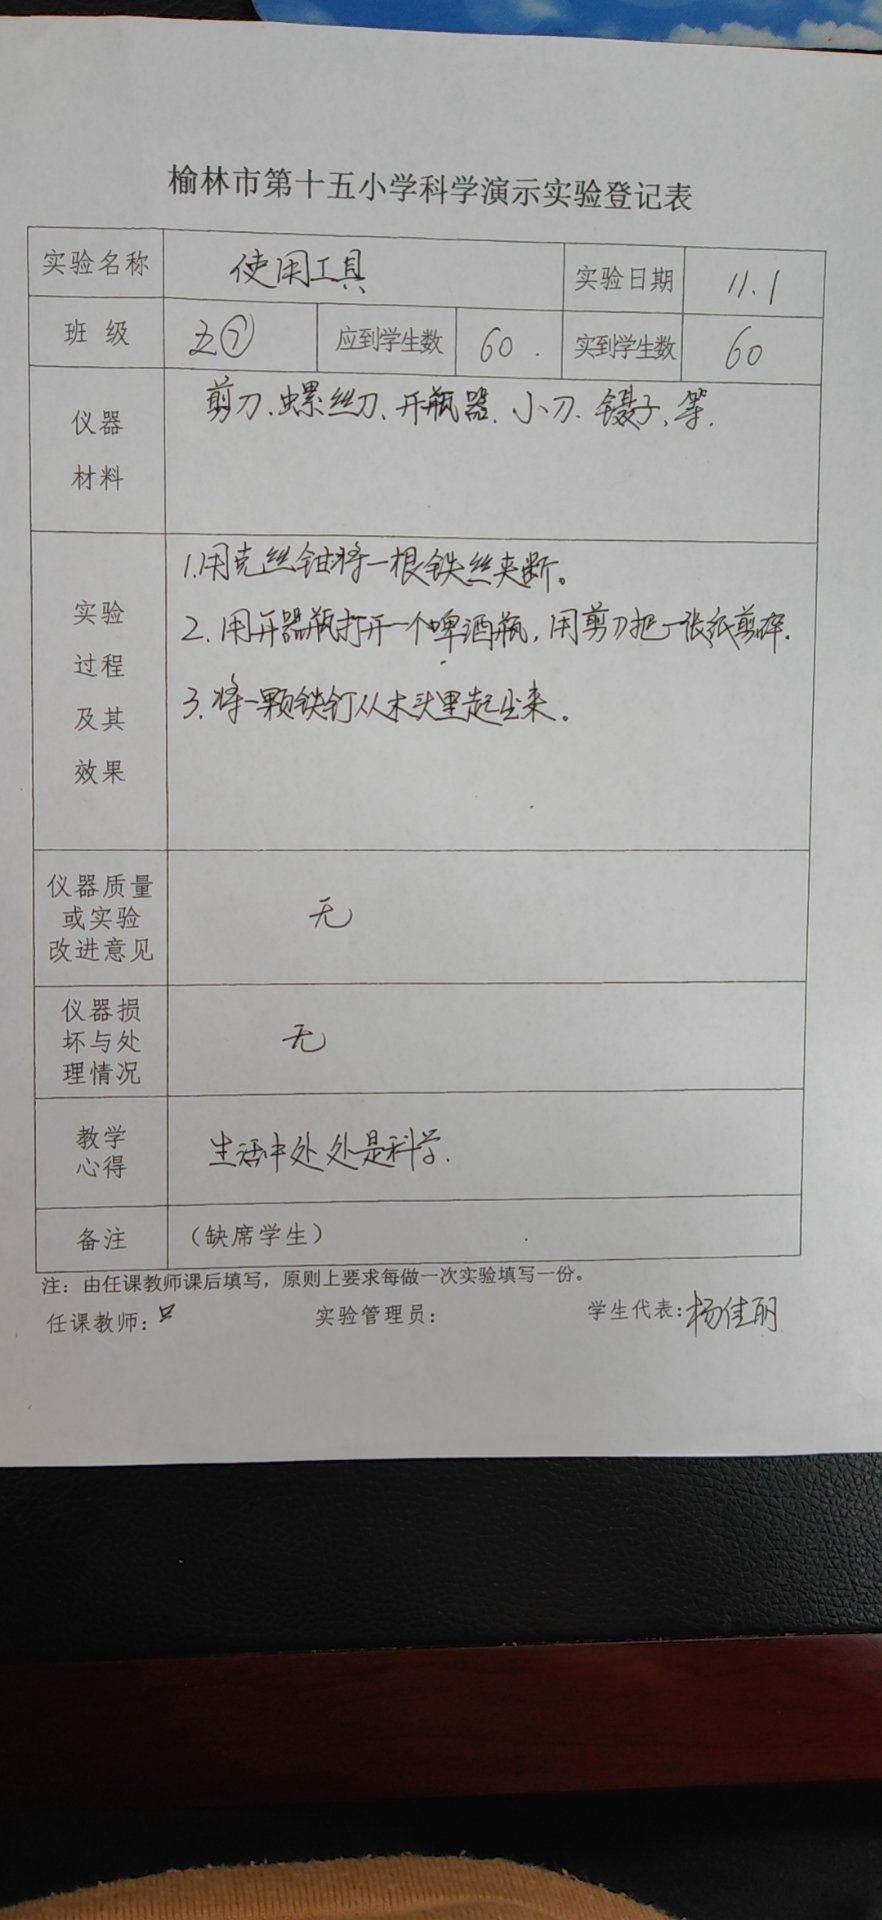 榆林市第十五小学科学演示实验登记表
实验名称 使用工具 实验日期 11.1
班 级 五⑦ 应到学生数 60. 实到学生数 60
仪器
材料
剪刀、螺丝刀、开瓶器、小刀、镊子、等.
实验
过程
及其
效果
1.用克丝钳将一根铁丝夹断。
2.用开器瓶打开一个啤酒瓶,用剪刀把一张纸剪碎.
3.将一颗铁钉从木头里起出来。
仪器质量
或实验
改进意见
无
仪器损
坏与处
理情况
无
教学
心得
生活中处处是科学.
备注 (缺席学生)
注:由任课教师课后填写,原则上要求每做一次实验填写一份。
任课教师: 实验管理员: 学生代表:杨佳丽